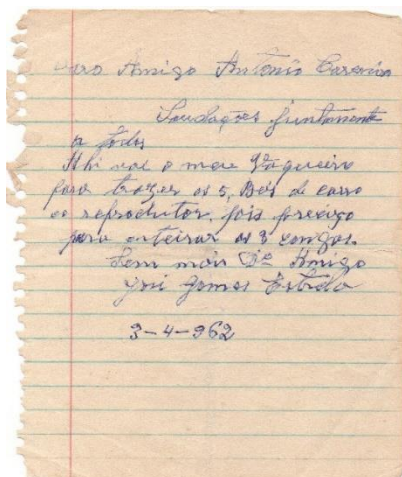 Caro Amigo Antonio
Saudações juntamente
a todos
Ahi vai o meu Vaqueiro
para trazer os 5, Bois de carro
eo reprodutor, pois preciso
para enteirar as 3 cangas.
Sem mais Do Amigo
José Gomes Estrela
3-4-962